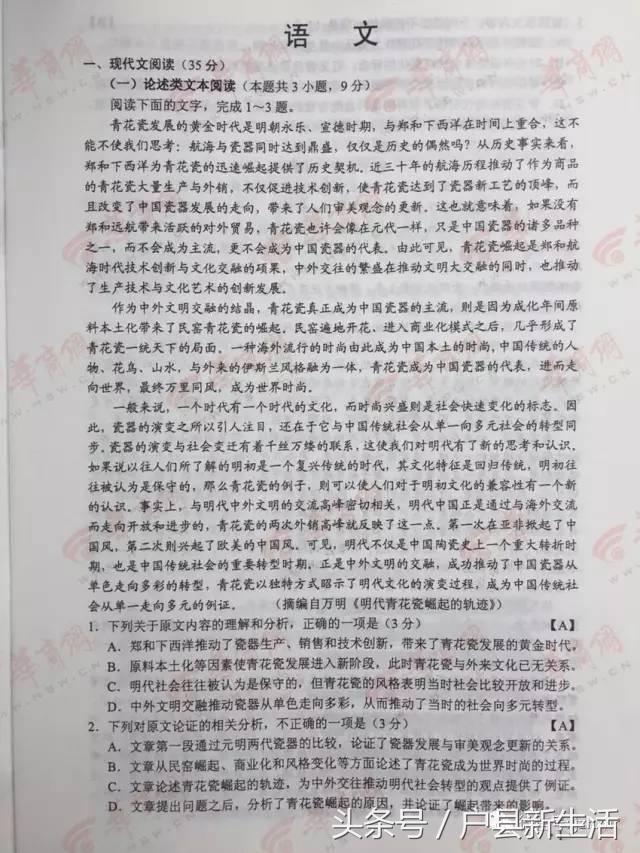 语 文
一、现代文阅读(35分)
(一)论述类文本阅读(本题共3小题,9分)
阅读下面的文字,完成1~3题。
青花瓷发展的黄金时代是明朝永乐、宣德时期,与郑和下西洋在时间上重合,这不
能不使我们思考:航海与瓷器同时达到鼎盛,仅仅是历史的偶然吗?从历史事实来看,
郑和下西洋为青花瓷的迅速崛起提供了历史契机。近三十年的航海历程推动了作为商品
的青花瓷大量生产与外销,不仅促进技术创新,使青花瓷达到了瓷器新工艺的顶峰,而
且改变了中国瓷器发展的走向,带来了人们审美观念的更新。这也就意味着,如果没有
郑和远航带来活跃的对外贸易,青花瓷也许会像在元代一样,只是中国瓷器的诸多品种
之一,而不会成为主流,更不会成为中国瓷器的代表。由此可见,青花瓷崛起是郑和航
海时代技术创新与文化交融的硕果,中外交往的繁盛在推动文明大交融的同时,也推动
了生产技术与文化艺术的创新发展。
作为中外文明交融的结晶,青花瓷真正成为中国瓷器的主流,则是因为成化年间原
料本土化带来了民窑青花瓷的崛起。民窑遍地开花、进入商业化模式之后,几乎形成了
青花瓷一统天下的局面。一种海外流行的时尚由此成为中国本土的时尚,中国传统的人
物、花鸟、山水,与外来的伊斯兰风格融为一体,青花瓷成为中国瓷器的代表,进而走
向世界,最终万里同风,成为世界时尚。
一般来说,一个时代有一个时代的文化,而时尚兴盛则是社会快速变化的标志。因
此,瓷器的演变之所以引人注目,还在于它与中国传统社会从单一向多元社会的转型同
步。瓷器的演变与社会变迁有着千丝万缕的联系,这使我们对明代有了新的思考和认识。
如果说以往人们所了解的明初是一个复兴传统的时代,其文化特征是回归传统,明初往
往被认为是保守的,那么青花瓷的例子,则可以使人们对于明初文化的兼容性有一个新
的认识。事实上,与明代中外文明的交流高峰密切相关,明代中国正是通过与海外交流
而走向开放和进步的,青花瓷的两次外销高峰就反映了这一点。第一次在亚非掀起了中
国风,第二次则兴起了欧美的中国风。可见,明代不仅是中国陶瓷史上一个重大转折时
期,也是中国传统社会的重要转型时期。正是中外文明的交融,成功推动了中国瓷器从
单色走向多彩的转型,青花瓷以独特方式昭示了明代文化的演变过程,成为中国传统社
会从单一走向多元的例证。 (摘编自万明《明代青花瓷崛起的轨迹》)
1. 下列关于原文内容的理解和分析,正确的一项是(3分) 【A】
A. 郑和下西洋推动了瓷器生产、销售和技术创新,带来了青花瓷发展的黄金时代。
B. 原料本土化等因素使青花瓷发展进入新阶段,此时青花瓷与外来文化已无关系。
C. 明代社会往往被认为是保守的,但青花瓷的风格表明当时社会比较开放和进步。
D. 中外文明交融推动瓷器从单色走向多彩,从而推动了当时的社会向多元转型。
2. 下列对原文论证的相关分析,不正确的一项是(3分) 【A】
A. 文章第一段通过元明两代瓷器的比较,论证了瓷器发展与审美观念更新的关系。
B. 文章从民窑崛起、商业化和风格变化等方面论述了青花瓷成为世界时尚的过程。
C. 文章论述青花瓷崛起的轨迹,为中外交往推动明代社会转型的观点提供了例证。
D. 文章提出问题之后,分析了青花瓷崛起的原因,并论证了崛起带来的影响。
头条号／户县新生活
华商网
WWW.HSW.CN